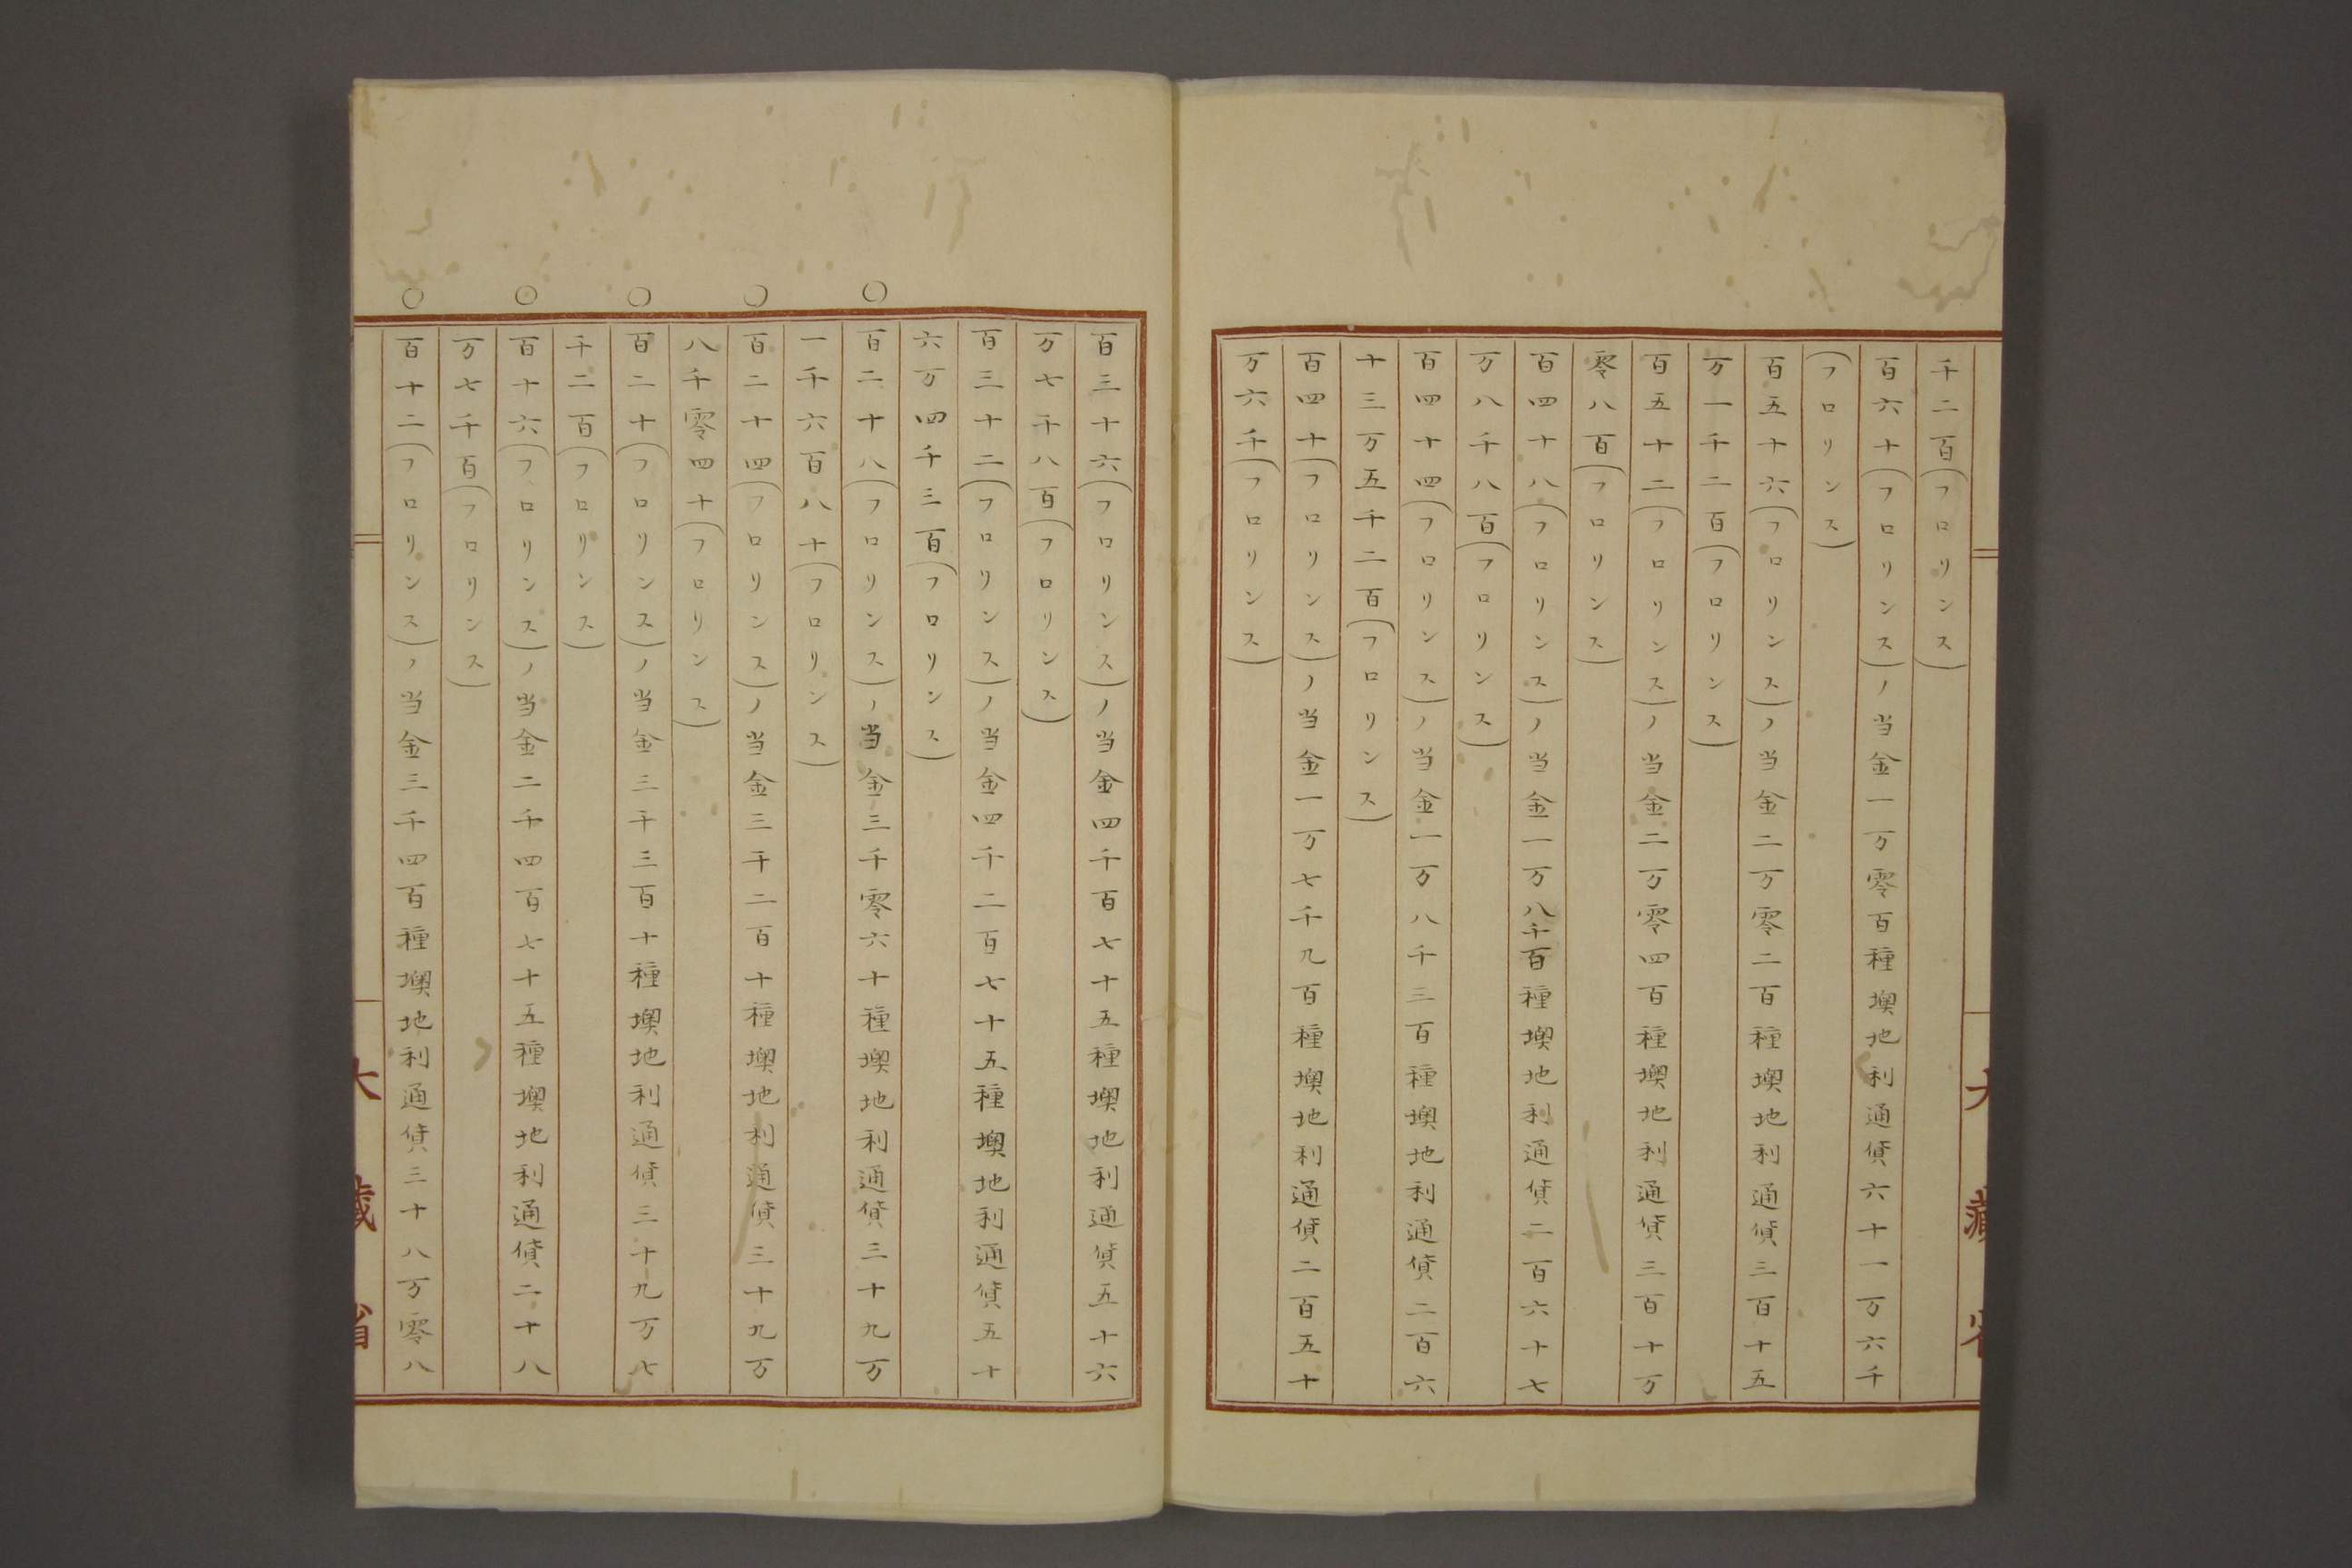 千二百(フロリンス)
百六十(フロリンス)ノ当金一万零百種墺地利通貨六十一万六千
(フロリンス)
百五十六(フロリンス)ノ当金二万零二百種墺地利通貨三百十五
万一千二百(フロリンス)
百五十二(フロリンス)ノ当金二万零四百種墺地利通貨三百十万
零八百(フロリンス)
百四十八(フロリンス)ノ当金一万八千百種墺地利通貨二百六十七
万八千八百(フロリンス)
百四十四(フロリンス)ノ当金一万八千三百種墺地利通貨二百六
十三万五千二百(フロリンス)
百四十(フロリンス)ノ当金一万七千九百種墺地利通貨二百五十
万六千(フロリンス)
大藏省
百三十六(フロリンス)ノ当金四千百七十五種墺地利通貨五十六
万七千八百(フロリンス)
百三十二(フロリンス)ノ当金四千二百七十五種墺地利通貨五十
六万四千三百(フロリンス)
○百二十八(フロリンス)ノ当金三千零六十種墺地利通貨三十九万
一千六百八十(フロリンス)
○百二十四(フロリンス)ノ当金三千二百十種墺地利通貨三十九万
八千零四十(フロリンス)
○百二十(フロリンス)ノ当金三千三百十種墺地利通貨三十九万七
千二百(フロリンス)
○百十六(フロリンス)ノ当金二千四百七十五種墺地利通貨二十八
万七千百(フロリンス)
○百十二(フロリンス)ノ当金三千四百種墺地利通貨三十八万零八
大藏省